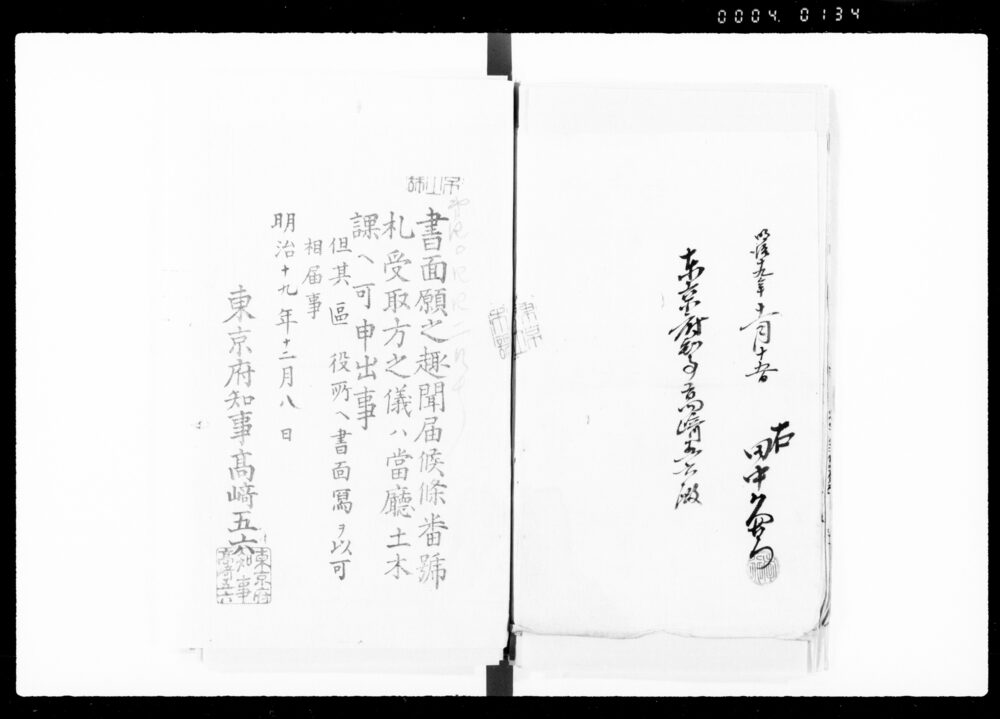 0004 0134
明治十九年十一月十五日
右
田中
東京府知事高崎五六殿
書面願之趣聞届候條番號
札受取方之儀ハ當廳土木
課ヘ可申出事
但其區役所ヘ書面寫ヲ以可
相届事
明治十九年十二月八日
東京府知事髙﨑五六
東京府
知事
高崎五六